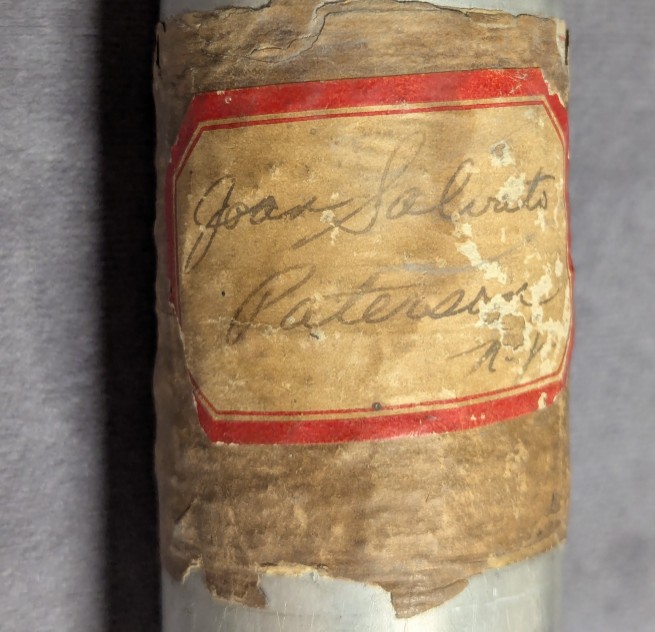 Joan Salvato
Paterson
N-Y